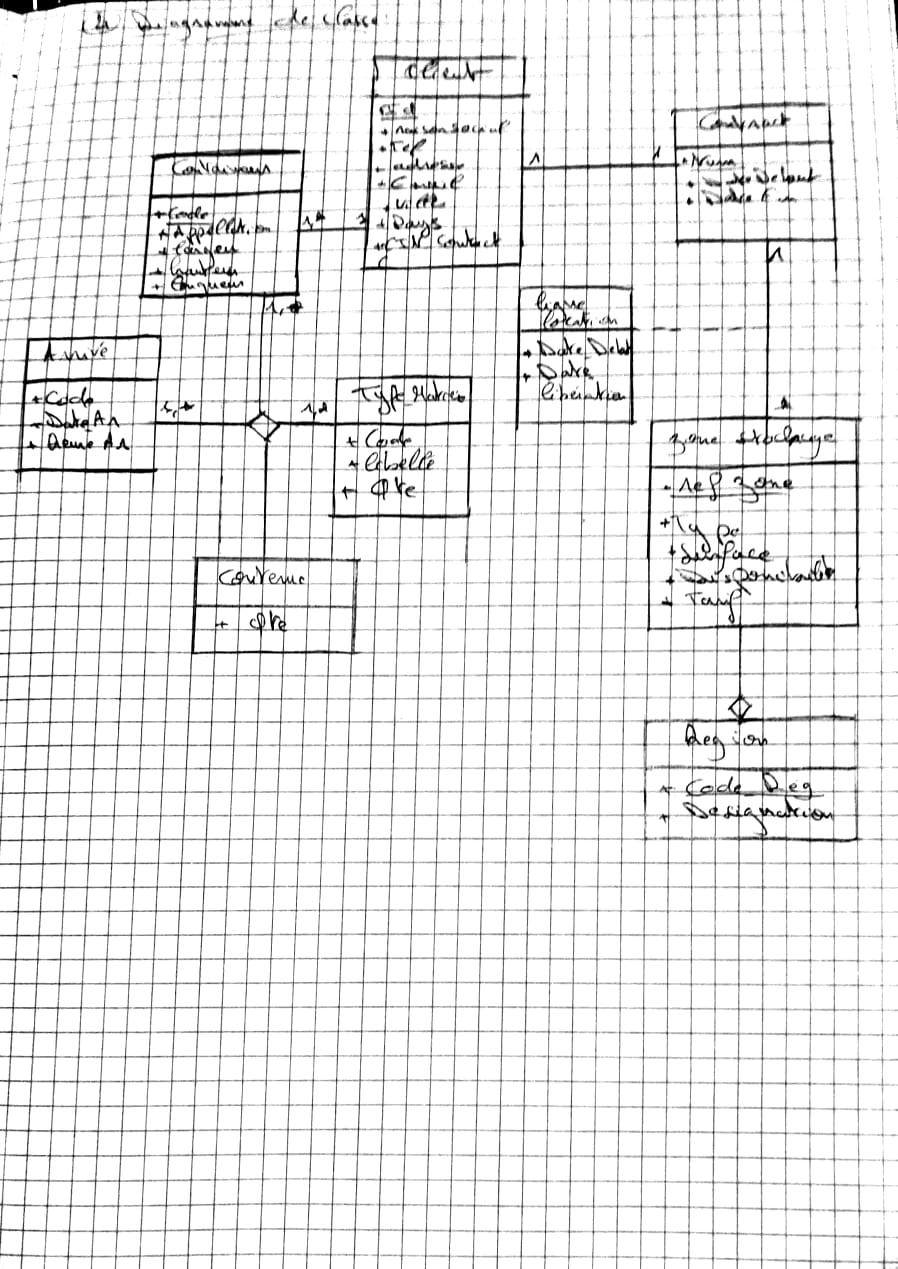 Diagramme de classe:
Client
Id
+ raison social
+ Tel
+ adresse
+ Email
+ Ville
+ Pays
+ CIN Contact
1
1
Contract
+ Num
+ Date Debut
+ Date Fin
Conteneur
+ Code
+ Appellation
+ largeur
+ hauteur
+ longueur
1,*
1,*
ligne
location
+ Date Debut
+ Date
libération
1
Arrivé
+ Code
+ Date Ar
+ heure Ar
1,*
1,*
+ Code
+ libellé
+ Qte
Zone stockage
+ ref zone
+ Type
+ Surface
+ Disponibilité
+ Tarif
Contenu
+ Qte
Region
+ Code Reg
+ Designation